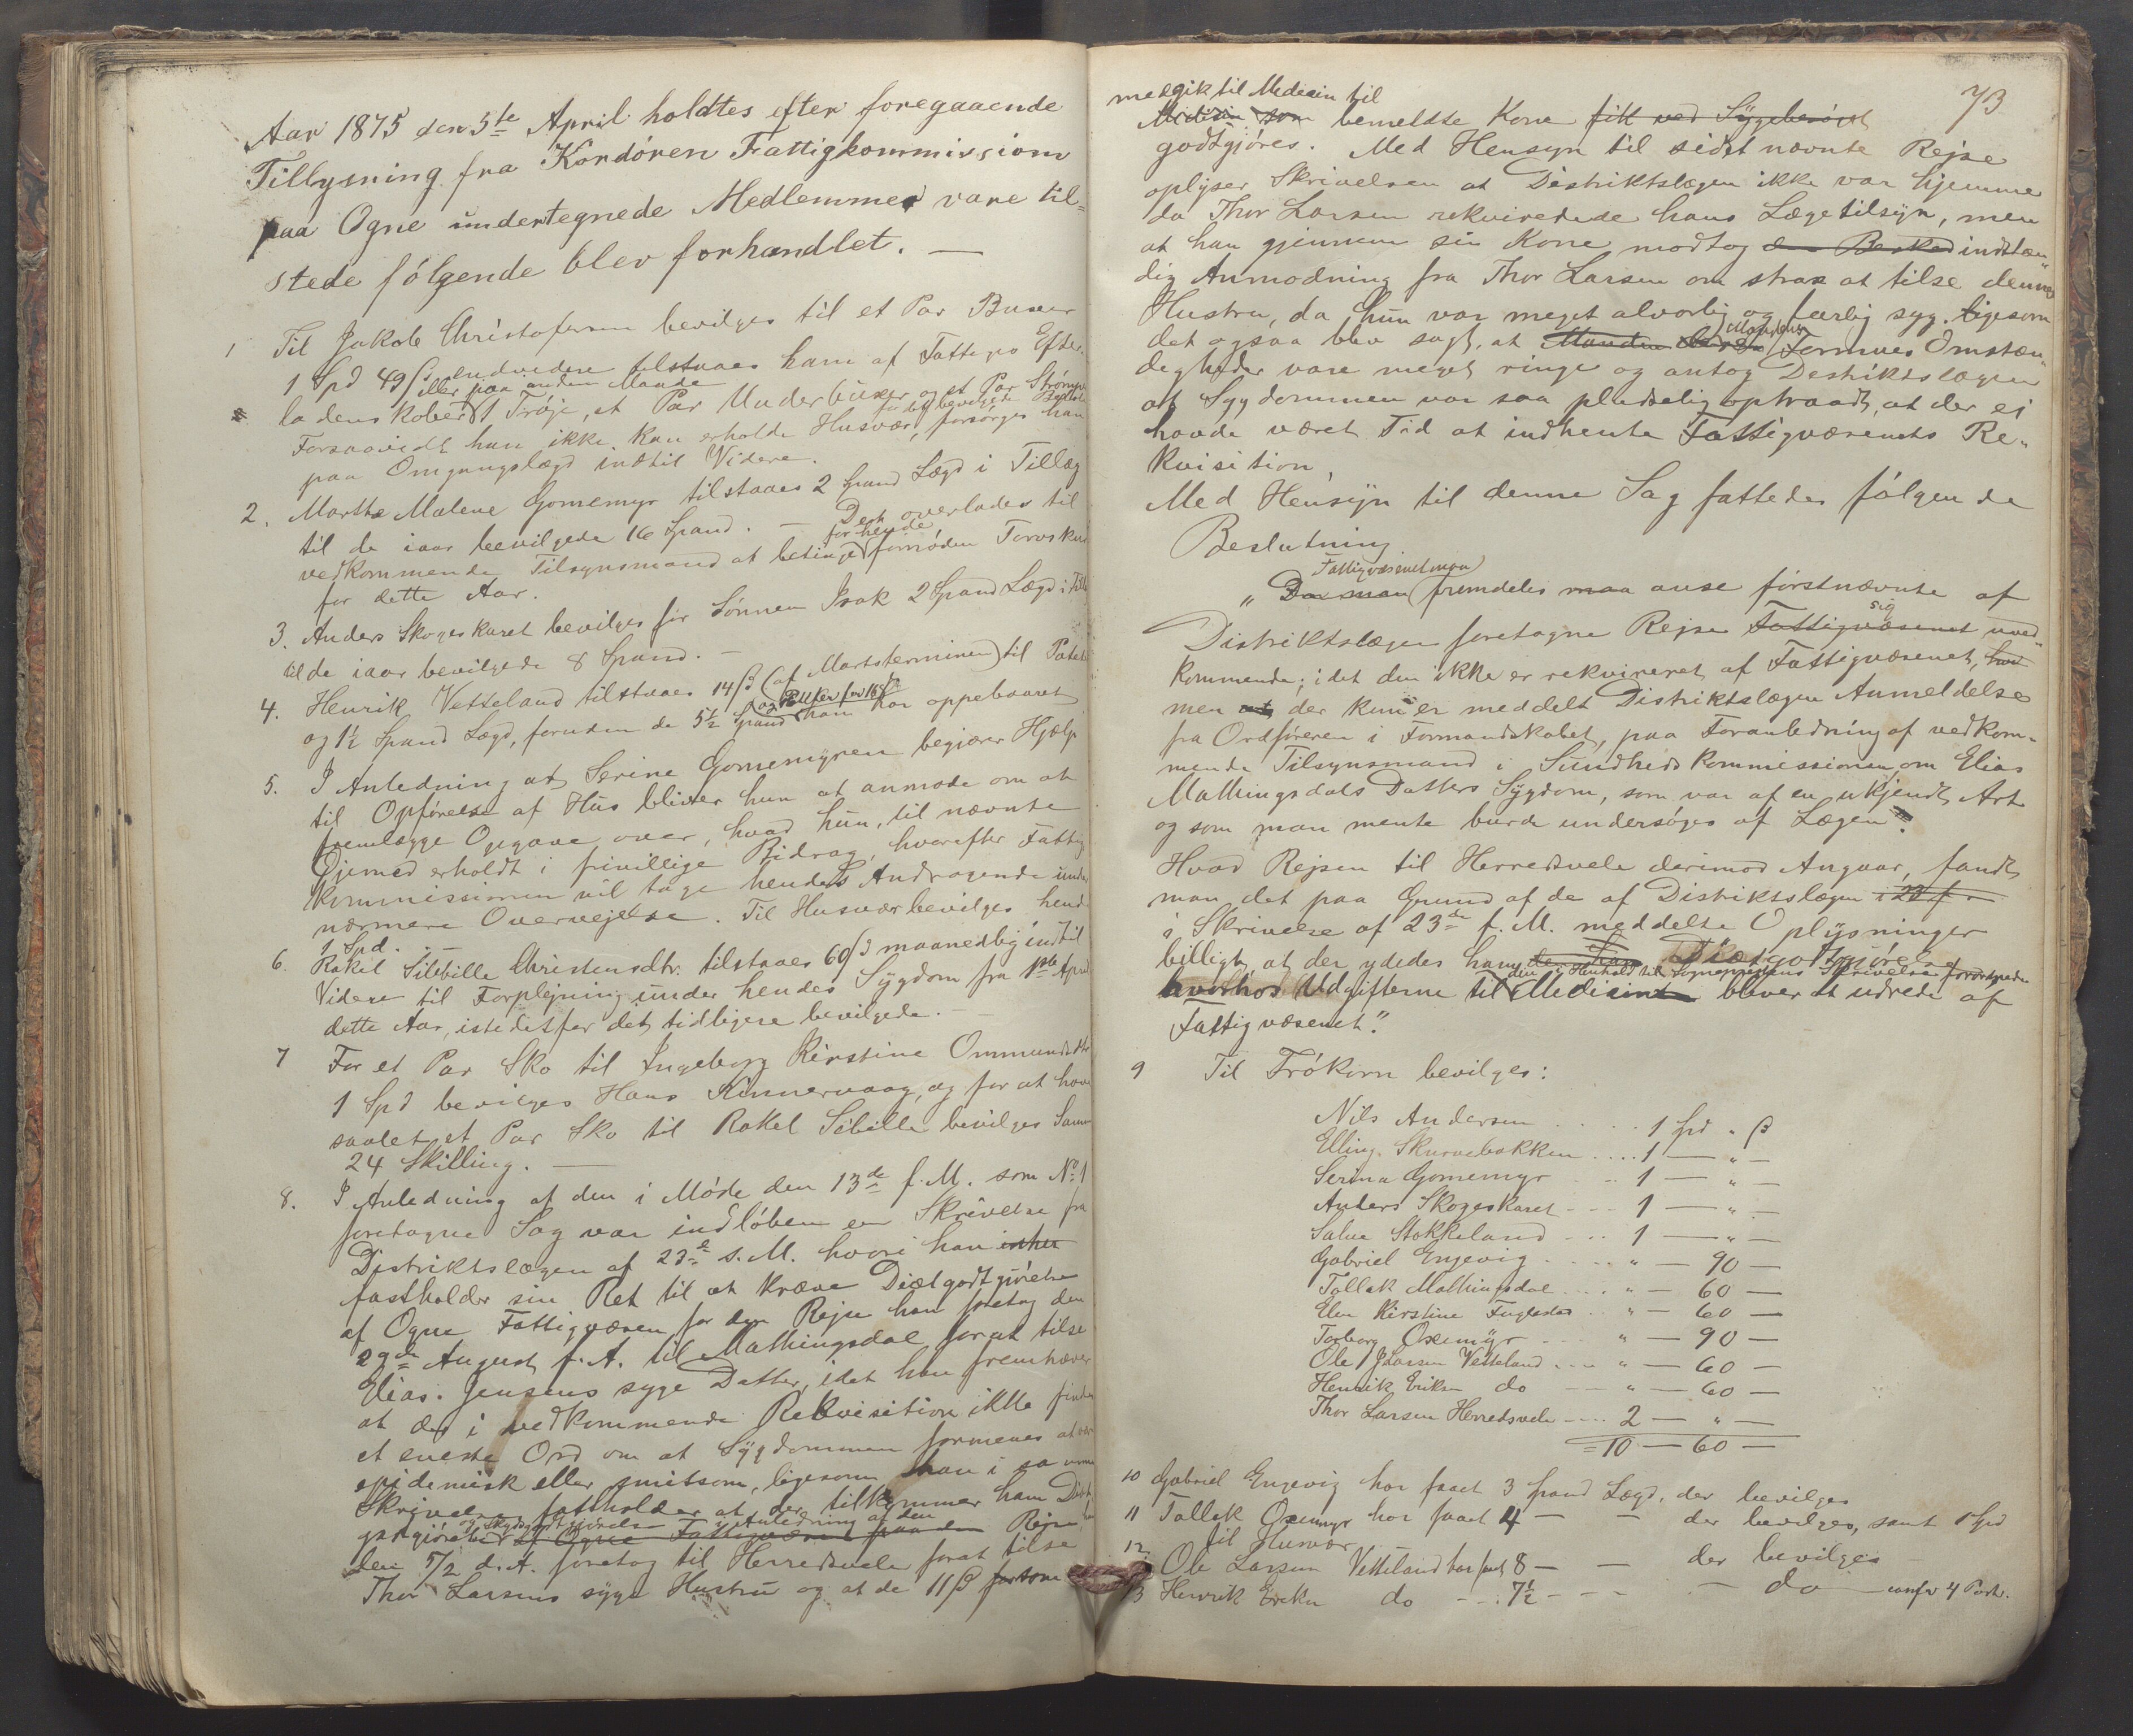 Aar 1875 den 5te April holdtes efter foregaaende
Tillysning fra Kordóren Fattigkommission
paa Ogne undertegnede Medlemmer vare til-
stede fölgende blev forhandlet. —
1 Til Jakob Christofersen bevilges til et Par Buxer
1 Spd 49 ß endvidere tilstaaes ham af Fattiges Efter-
eller paa anden Maade
ladenskaber 1 Tröje, et Par Underbuxer og et Par Strömper
Forsaavidt han ikke kan erholde Husvær, forsörges han
paa Omgangslægd indtil Videre.
2. Marthe Malene Gomemyr tilstaaes 2 Spand Lægd i Tillæg
til de iaar bevilgede 16 Spand. — Det overlades til
for hende
vedkommende Tilsynsmand at betinge fornöden Torvskur
for dette Aar.
3. Anders Skogeskaret bevilges for Sönnen Isak 2 Spand Lægd i
til de iaar bevilgede 8 Spand. —
4. Henrik Vetteland tilstaaes 14 ß (af Martsterminen) til
og 1½ Spand Lægd, foruden de 5½ Spand han har oppebaaret
5. I Anledning at Serine Gomemyren begjærer Hjælp
til Opförelse af Hus bliver hun at anmode om at
fremlægge Opgave over, hvad hun, til nævnte
Öjemed erholdt i frivillige Bidrag, hvorefter Fattig
kommissionen vil tage hendes Andragende under
nærmere Overvejelse. Til Husvær bevilges hende
1 Spd. —
6. Rakel Silebille Christensdtr. tilstaaes 60 ß maanedlig indtil
Videre til Forplejning under hendes Sygdom fra 1ste April
dette Aar, istedetfor det tidligere bevilgede. —
7 For et Par Sko til Ingeborg Kirstine Ommundsdtr
1 Spd bevilges Hans Kinnervaag, og for at have
saalet et Par Sko til Rakel Sibille bevilges Samme
24 Skilling. —
8. I Anledning af den i Möde den 13de f. M. som No 1
foretagne Sag var indlöben en Skrivelse fra
Distriktslægen af 23de s. M. hvori han
fastholder sin Ret til at kræve Diætgodtgjörelse
af Ogne Fattigvæsen for den Rejse han foretog den
29de August f. A. til Mathingsdal for at tilse
Elias Jensens syge Datter, idet han fremhæver
at der i vedkommende Rekvisition ikke findes
et eneste Ord om at Sygdommen formenes at være
epidemisk eller smitsom, ligesom han i sa
Skrivelse fastholder at der tilkommer ham Diæt-
og Skydsgodtgjörelse i Anledning af den
godtgjörelse af Ogne Fattigvæsen paa den Rejse han
den 5/2 d. A. foretog til Herredsvele for at tilse
Thor Larsens syge Hustru og at de 11 ß som
73
medgik til Medicin til
Medicin som bemeldte Kone fik ved Sygebesöget
godtgjöres. Med Hensyn til sidst nævnte Rejse
oplyser Skrivelsen at Distriktslægen ikke var hjemme
da Thor Larsen rekvirerede hans Lægetilsyn, men
at han gjennem sin Kone modtog den Besked indstæn-
dig Anmodning fra Thor Larsen om strax at tilse dennes
Hustru, da hun var meget alvorlig og farlig syg. ligesom
det ogsaa blev sagt, at Manden Formues Omstæn-
digheder vare meget ringe og antog Distriktslægen
at Sygdommen var saa pludselig optraadt, at der ei
havde været Tid at indhente Fattigvæsenets Re-
kvisition.
Med Hensyn til denne Sag fattedes fölgende
Beslutning
Fattigvæsenet maa
"Da man fremdeles maa anse förstnævnte af
Distriktslægen foretagne Rejse Fattigvæsenet uved-
sig
kommende; idet den ikke er rekvireret af Fattigvæsenet,
men at der kun er meddelt Distriktslægen Anmeldelse
fra Ordföreren i Formandskabet, paa Foranledning af vedkom-
mende Tilsynsmand i Sundhedskommissionen om Elias
Mathingsdals Datters Sygdom, som var af en ukjendt Art
og som man mente burde undersöges af Lægen.
Hvad Rejsen til Herredsvele derimod Angaar, fandt
man det paa Grund af de af Distriktslægen i 23 f
i Skrivelse af 23de f. M. meddelte Oplysninger
billigt, at der ydedes ham Diætgodtgjörelse
den i Henhold til Sogneprestens Skrivelse
hvorhos Udgifterne til Medicin bliver at udrede af
Fattigvæsenet."
9 Til Frókorn bevilges:
Nils Andersen . . . . . 1 Spd " ß
Elling Skurvebakken . . . . 1 — " —
Serina Gomemyr . . 1 — " —
Anders Skogeskaret - - - 1 — " —
Salve Stokkeland - - - 1 — " —
Gabriel Engevig . . . . " — 90 —
Tollak Mathingsdal . . . . " — 60 —
Elen Kirstine Fuglestad . " — 60 —
Torborg Oxemyr - - - " — 90 —
Ole Larsen Vetteland . . . " — 60 —
Henrik Eriksen do - - - " — 60 —
Thor Larsen Herredsvele - - - 2 — " —
= 10 — 60 —
10 Gabriel Engevig har faaet 3 Spand Lægd, der bevilges
11 Tollak Oxemyr har faaet 4 — — der bevilges, samt 1 Spd
til Husvær
12 Ole Larsen Vetteland har faaet 8 — — der bevilges
13 Henrik Eriksen do - - - 7½ - - - — do — confr 4 Post.